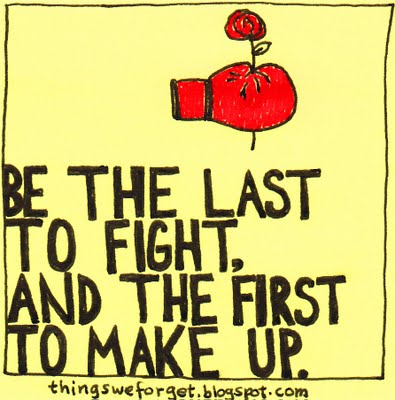 BE THE LAST
TO FIGHT,
AND THE FIRST
TO MAKE UP.
thingsweforget.blogspot.com